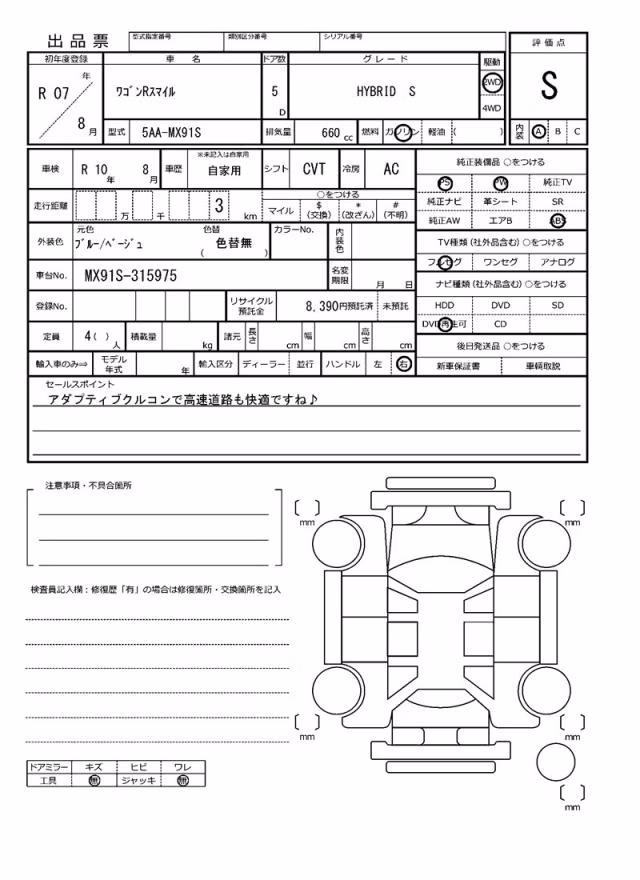 出品票
型式指定番号 類別区分番号 シリアル番号
評価点
S
内装 A B C
初年度登録 車名 ドア数 グレード 駆動
R 07 年 8 月
ワゴンRスマイル 5 D HYBRID S 2WD 4WD
型式 5AA-MX91S 排気量 660 cc 燃料 ガソリン 軽油 ( )
車検 R 10 年 8 月 車歴 ※未記入は自家用 自家用 シフト CVT 冷房 AC
走行距離 万 千 3 km
○をつける
マイル $ (交換) * (改ざん) # (不明)
外装色 元色 ブルー/ベージュ 色替 色替無 ( ) カラーNo. 内装色
車台No. MX91S-315975 名変期限 月 日
登録No. リサイクル預託金 8,390円預託済 未預託
定員 4 ( ) 人 積載量 kg 諸元 長さ cm 幅 cm 高さ cm
輸入車のみ⇒ モデル年式 年 輸入区分 ディーラー 並行 ハンドル 左 右
純正装備品 ○をつける
PS PW 純正TV
純正ナビ 革シート SR
純正AW エアB ABS
TV種類 (社外品含む) ○をつける
フルセグ ワンセグ アナログ
ナビ種類 (社外品含む) ○をつける
HDD DVD SD
DVD再生可 CD
後日発送品 ○をつける
新車保証書 車輌取説
セールスポイント
アダプティブクルコンで高速道路も快適ですね♪
注意事項・不具合箇所
検査員記入欄：修復歴「有」の場合は修復箇所・交換箇所を記入
ドアミラー キズ ヒビ ワレ
工具 無 ジャッキ 無
[ ] mm
[ ] mm
[ ] mm
[ ] mm
[ ] mm